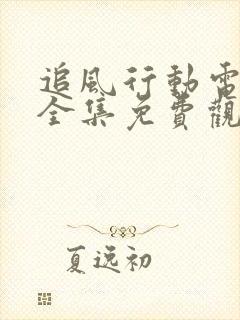 追風行動電
全集免費觀
夏逸初